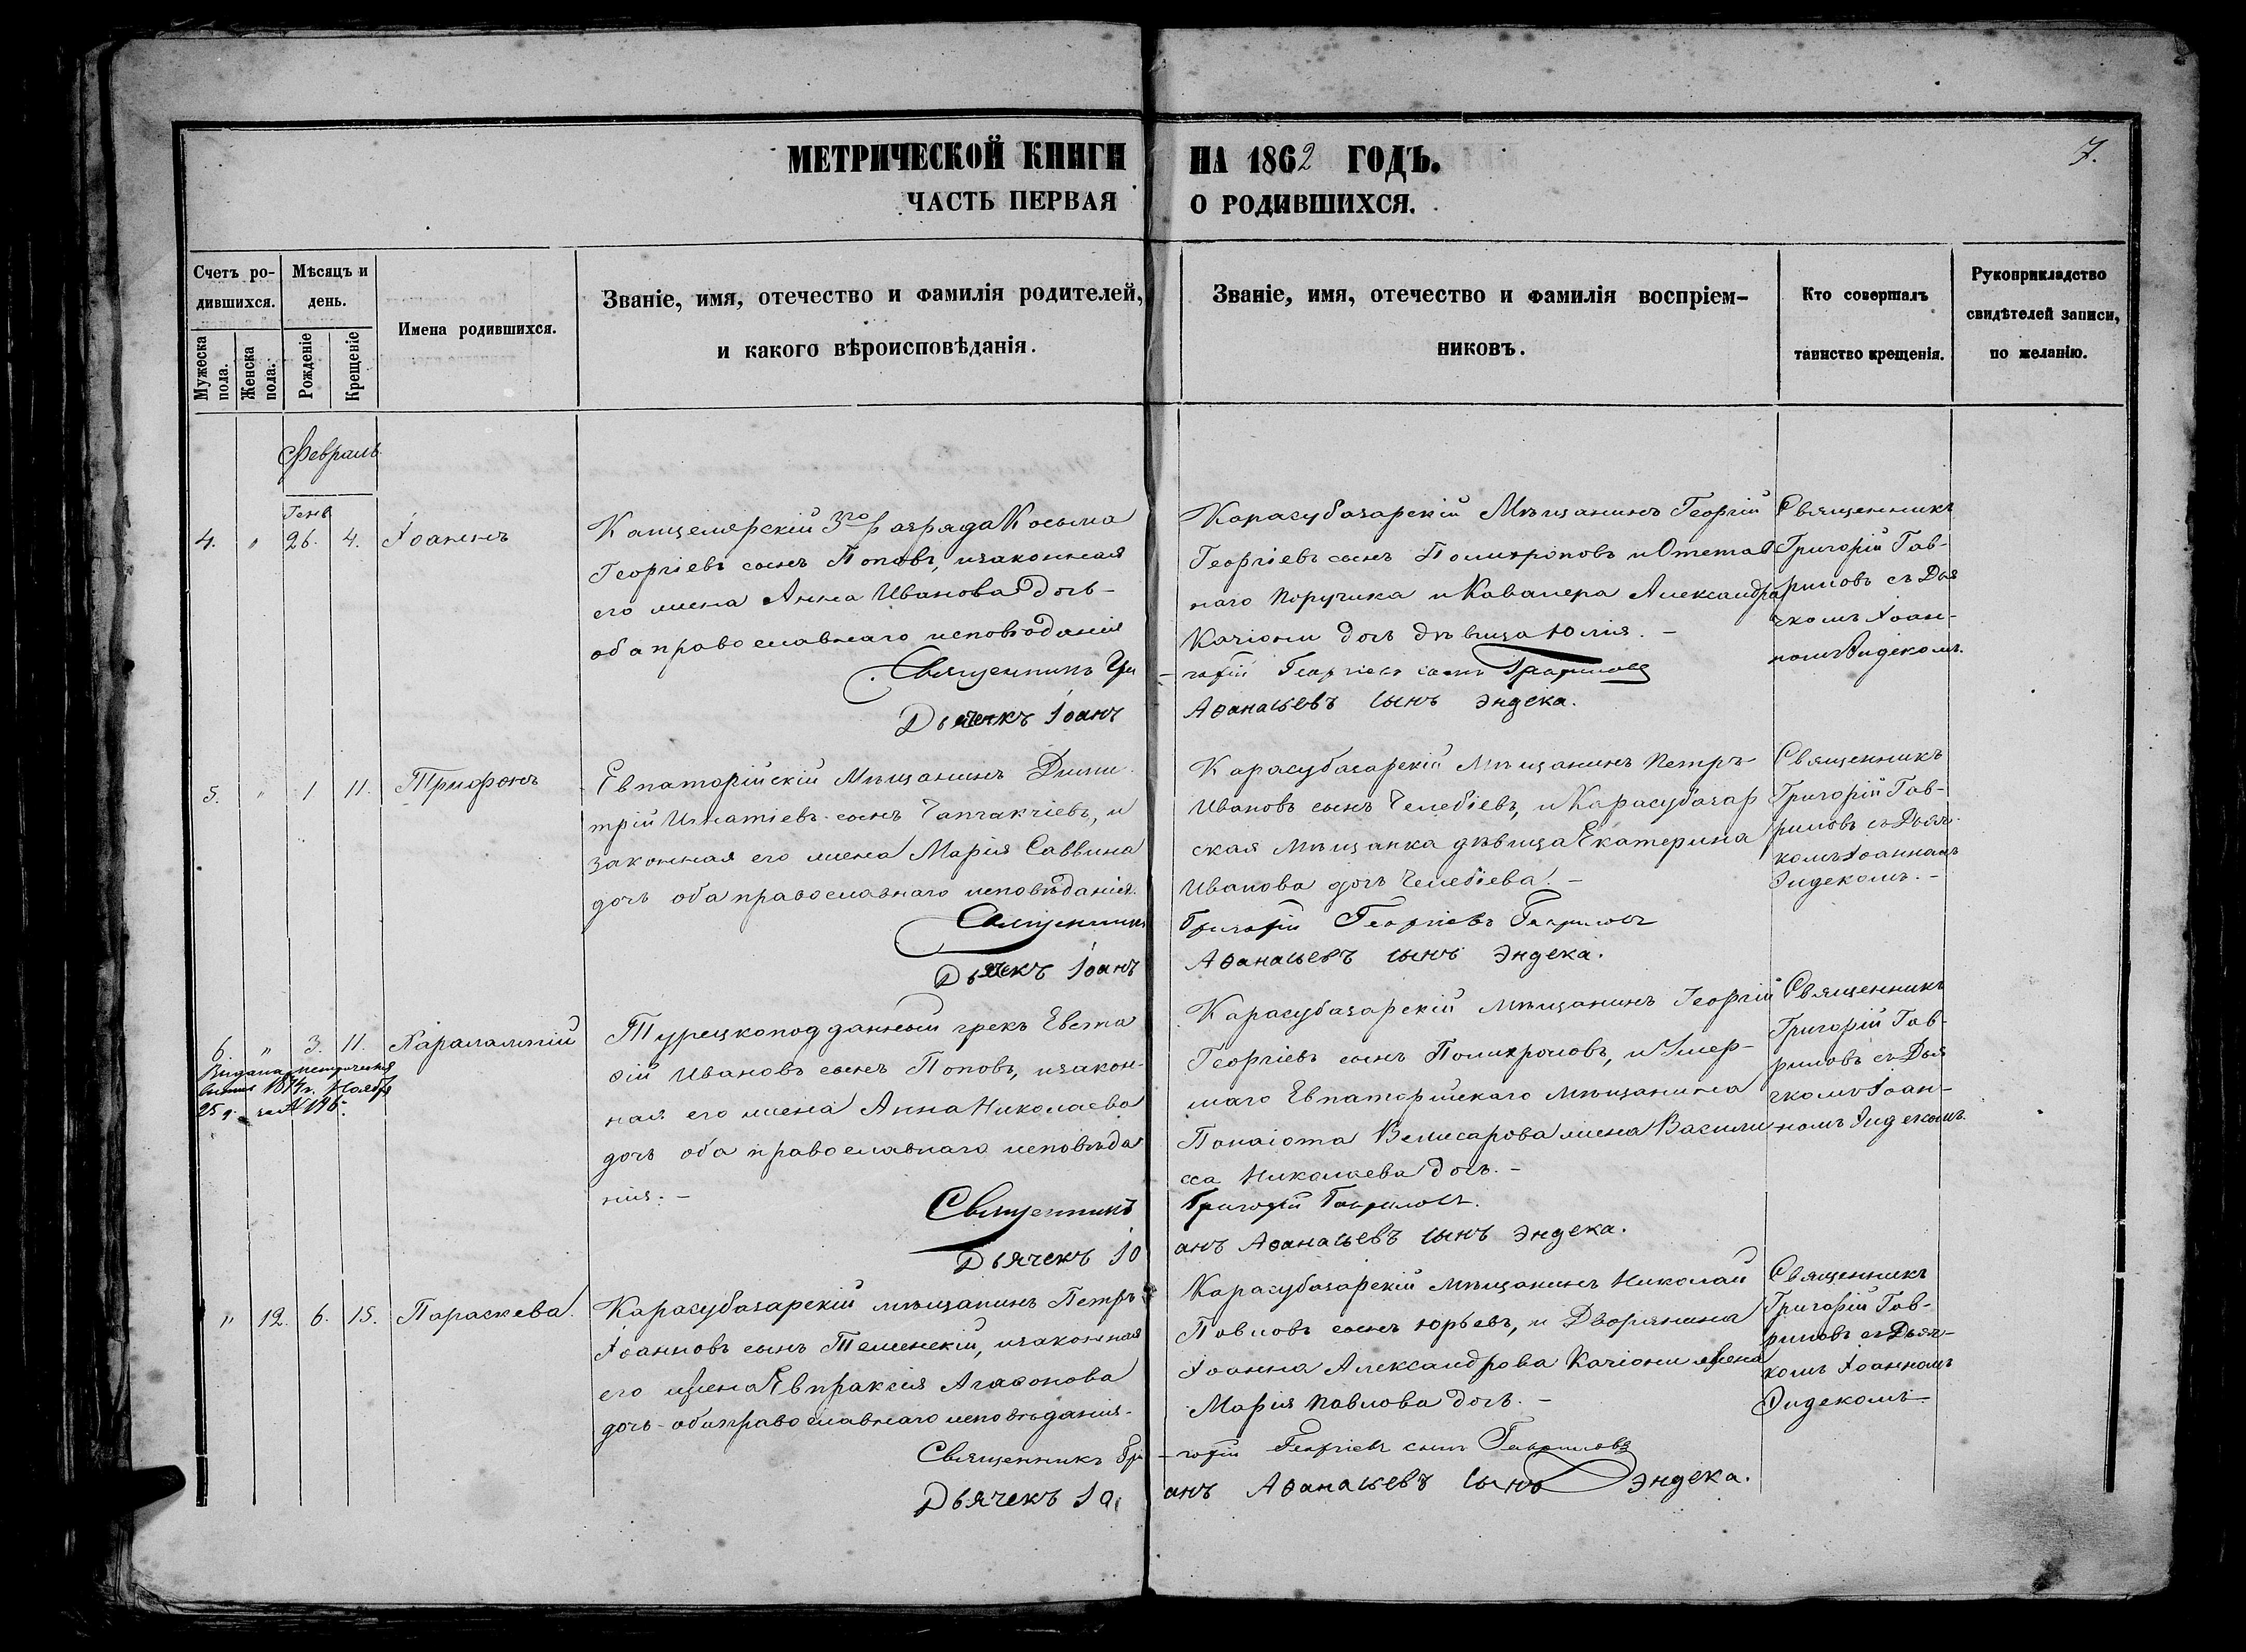 МЕТРИЧЕСКОЙ КНИГИ НА 1862 ГОДЪ.
7.
ЧАСТЬ ПЕРВАЯ О РОДИВШИХСЯ.
Счетъ ро-
дившихся.
Мужеска пола.
Женска пола.
Мѣсяцъ и
день.
Рожденіе
Крещеніе
Имена родившихся.
Званіе, имя, отечество и фамилія родителей,
и какого вѣроисповѣданія.
Званіе, имя, отечество и фамилія воспріем-
никовъ.
Кто совершалъ
таинство крещенія.
Рукоприкладство
свидѣтелей записи,
по желанію.
Февраль
Генв
4. " 26. 4. Іоаннъ
Канцелярскій 3го разряда Косьма
Георгіевъ сынъ Поповъ, и законная
его жена Анна Иванова дочь-
оба православнаго исповѣданія
Карасубазарскій Мѣщанинъ Георгій
Георгіевъ сынъ Полихроновъ и Отстав
наго Поручика и Кавалера Александра
Качіони дочь дѣвица Юлія. -
Священникъ
Григорій Гав-
риловъ съ Дья
чкомъ Іоан-
номъ Эндекомъ.
Священникъ Гри - горій Георгіевъ сынъ Гавриловъ
Дьячекъ Іоанъ Аѳанасьевъ сынъ Эндека.
5. " 1 11. Трифонъ
Евпаторійскій Мѣщанинъ Дими
трій Игнатіевъ сынъ Чапчакчіевъ, и
законная его жена Марія Саввина
дочь оба православнаго исповѣданія.
Карасубазарскій Мѣщанинъ Петръ
Ивановъ сынъ Челебіевъ, и Карасубазар
ская Мѣщанка дѣвица Екатерина
Иванова дочь Челебіева. -
Священникъ
Григорій Гав-
риловъ съ Дьяч-
комъ Іоанномъ
Эндекомъ. -
Священникъ Григорій Георгіевъ Гавриловъ
Дьячекъ Іоанъ Аѳанасьевъ сынъ Эндека.
6. " 3. 11. Харалампій
Выдана метрическая
25 д. за № 196.
Турецкоподданный грекъ Евста
ѳій Ивановъ сынъ Поповъ, и закон-
ная его жена Анна Николаева
дочь оба православнаго исповѣда
нія. -
Карасубазарскій мѣщанинъ Георгій
Георгіевъ сынъ Полихроновъ, и Умер-
шаго Евпаторійскаго Мѣщанина
Панаіота Велисарова жена Васили
сса Николаева дочь. -
Священникъ
Григорій Гав-
риловъ съ Дья
чкомъ Іоан-
номъ Эндекомъ.
Священникъ Григорій Гавриловъ.
Дьячекъ Іо анъ Аѳанасьевъ сынъ Эндека.
" 12. 6. 15. Параскева.
Карасубазарскій мѣщанинъ Петръ
Іоанновъ сынъ Теменскій, и законная
его жена Евпраксія Агаѳонова
дочь-оба православнаго исповѣданія-
Карасубазарскій мѣщанинъ Николай
Павловъ сынъ Юрьевъ, и Дворянина
Іоанна Александрова Качіони жена
Марія Павлова дочь. -
Священникъ
Григорій Гав-
риловъ съ Дьяч-
комъ Іоанномъ
Эндекомъ
Священникъ Гри - горій Георгіевъ сынъ Гавриловъ
Дьячекъ Іо анъ Аѳанасьевъ сынъ Эндека.